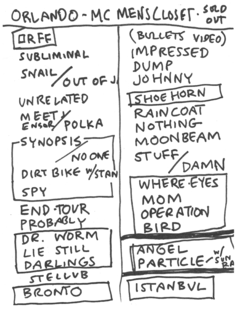 ORLANDO - MC MENSCLOSET. SOLD OUT
ORFF
SUBLIMINAL
SNAIL/
OUT OF J
UNRELATED
MEET/
ENSOR/POLKA
SYNOPSIS
NO ONE
DIRT BIKE W/STAN
SPY
END-TOUR
PROBABLY
DR. WORM
LIE STILL
DARLINGS
STELLUB
BRONTO
(BULLETS VIDEO)
IMPRESSED
DUMP
JOHNNY
SHOEHORN
RAINCOAT
NOTHING
MOONBEAM
STUFF/
DAMN
WHERE EYES
MOM
OPERATION
BIRD
ANGEL
PARTICLE/W/SUN RA
ISTANBUL